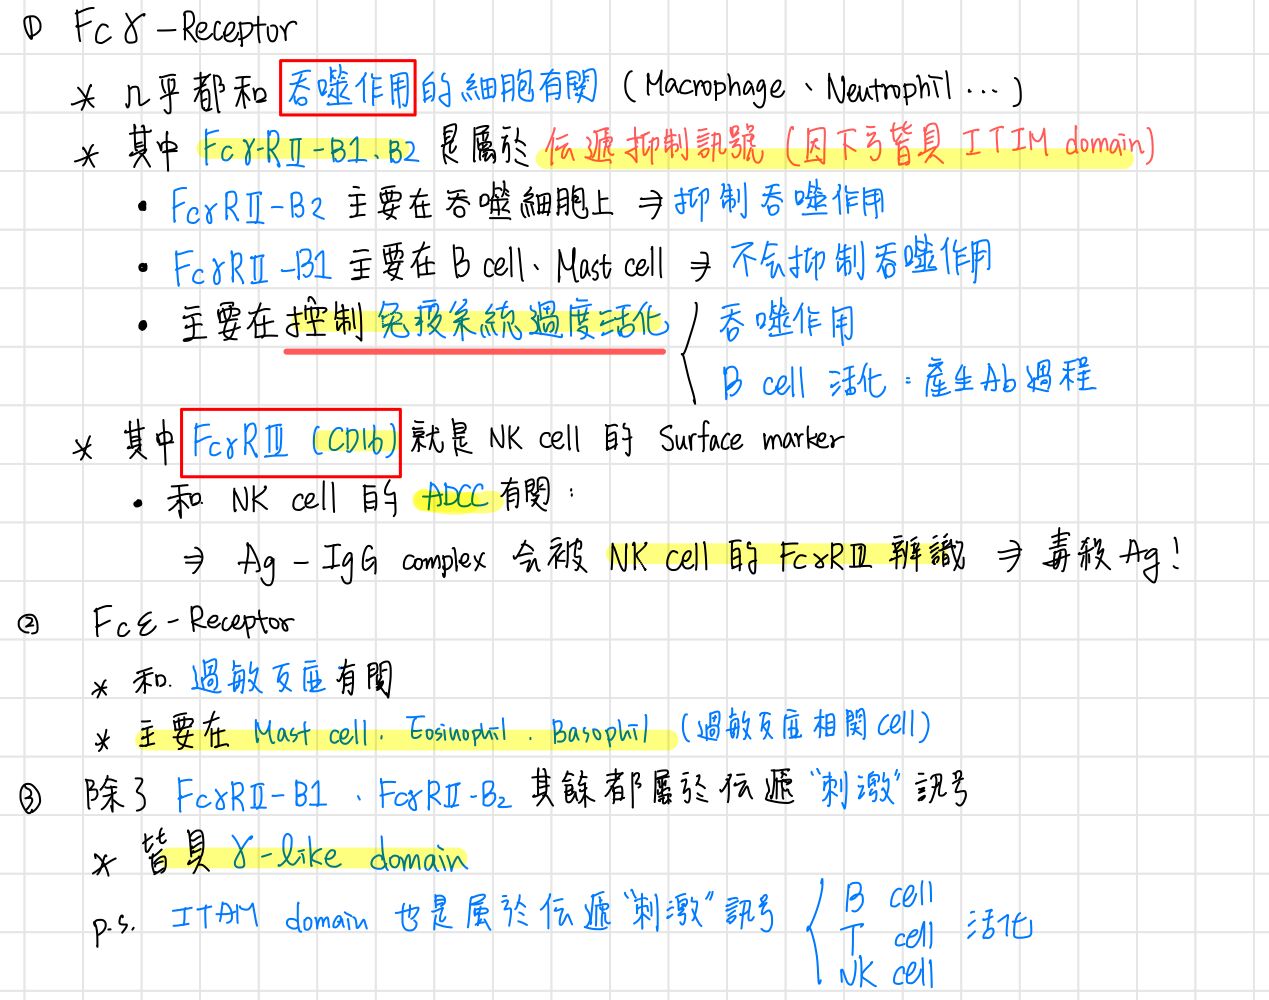 ① Fcγ-Receptor
* 几乎都和吞噬作用的細胞有関 (Macrophage、Neutrophil...)
* 其中 FcγRⅡ-B1、B2 是屬於伝遞抑制訊號 (因下ㄎ皆具 ITIM domain)
• FcγRⅡ-B2 主要在吞噬細胞上 ⇒ 抑制吞噬作用
• FcγRⅡ-B1 主要在 B cell、Mast cell ⇒ 不会抑制吞噬作用
• 主要在控制免疫系統過度活化 { 吞噬作用
B cell 活化:產生Ab過程
* 其中 FcγRⅢ (CD16) 就是 NK cell 的 Surface marker
• 和 NK cell 的 ADCC 有関:
⇒ Ag-IgG complex 会被 NK cell 的 FcγRⅢ 辨識 ⇒ 毒殺 Ag!
② Fcε-Receptor
* 和.過敏反应有関
* 主要在 Mast cell、Eosinophil、Basophil (過敏反应相関cell)
③ 除了 FcγRⅡ-B1、FcγRⅡ-B2 其餘都屬於伝遞"刺激"訊号
* 皆具 γ-like domain
p.s. ITAM domain 也是屬於伝遞"刺激"訊号 { B cell
T cell 活化
NK cell